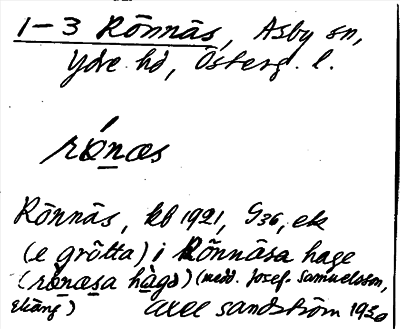 1-3 Rönnäs, Asby sn,
Ydre hd, Österg. l.
rö́næs
Rönnäs, kb 1921, G36, ek
(e grötta) i Rönnäsa hage
(rö̀næsa hàgə) (medd. Josef Samuelsson,
Ekäng) Axel Sandström 1930